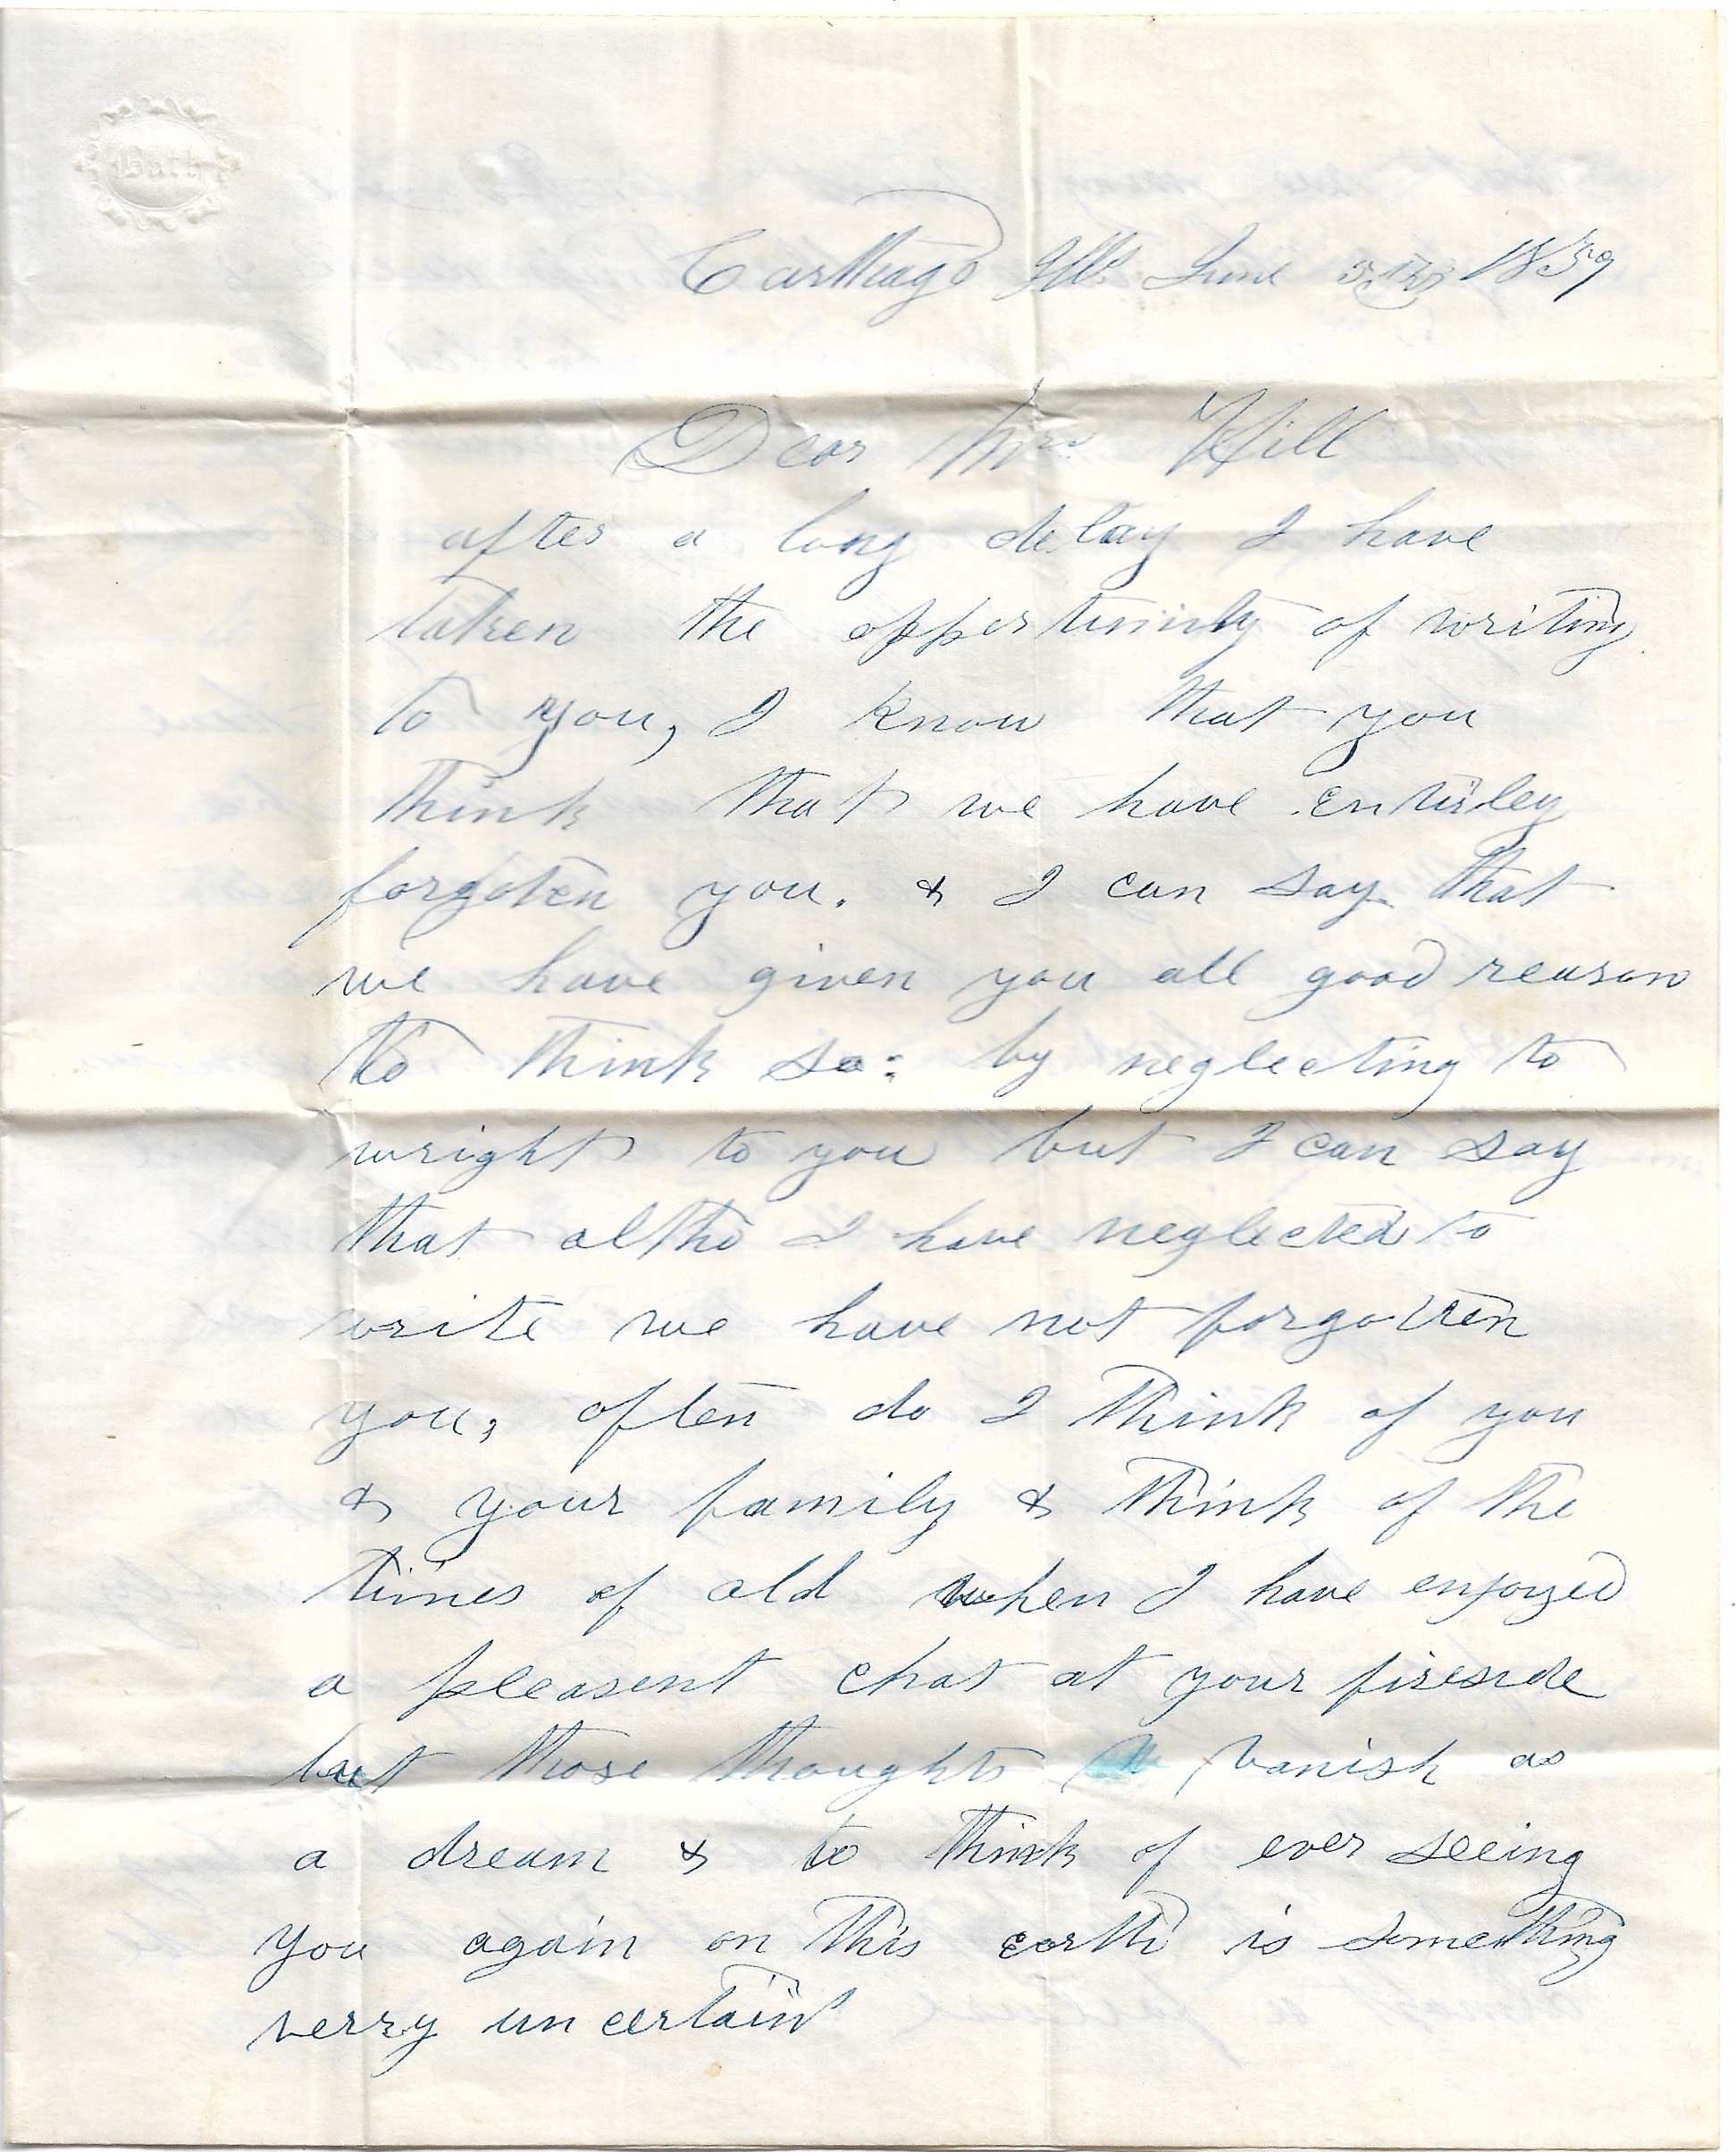 Bath
Carthage Ills June 5th 1859
Dear Mrs Hill
after a long delay I have
taken the opportunity of writing
to you, I know that you
think that we have entirley
forgoten you. & I can say that
we have given you all good reason
to think so: by neglecting to
wright to you but I can say
that altho I have neglected to
write we have not forgotten
you, often do I think of you
& your family & think of the
times of old when I have enjoyed
a pleasent chat at your fireside
but those thoughts vanish as
a dream & to think of ever seeing
you again on this earth is something
verry uncertain